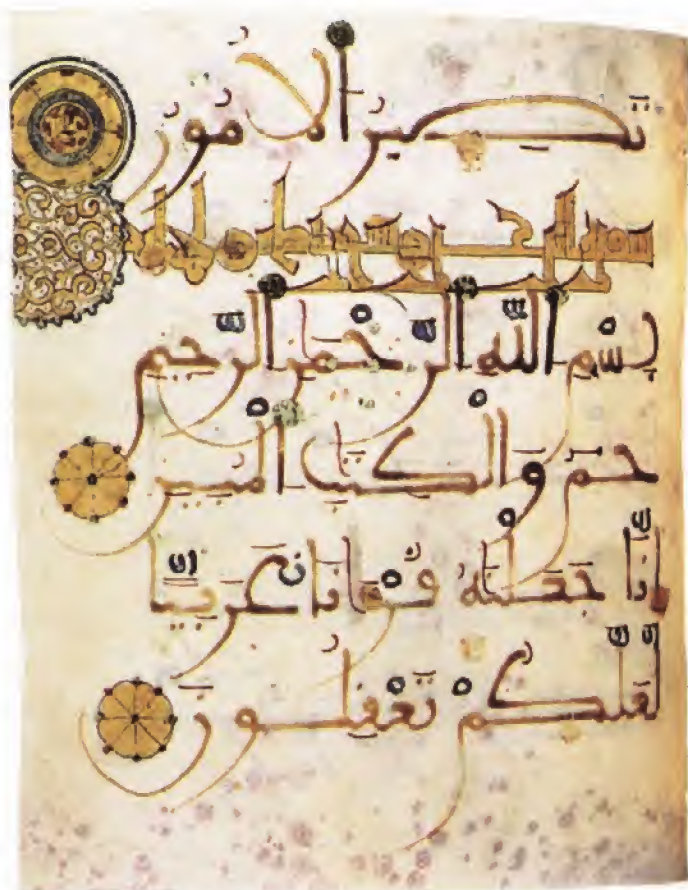 تَصِيرُ الامُورُ
سورة الزخرف
بِسْمِ اللّهِ الرَّحْمَنِ الرَّحِيمِ
حمَ وَالْكِتَبِ الْمُبِينِ
إِنَّا جَعَلْنَهُ قُرْءَانًا عَرَبِيًّا
لَّعَلَّكُمْ تَعْقِلُونَ